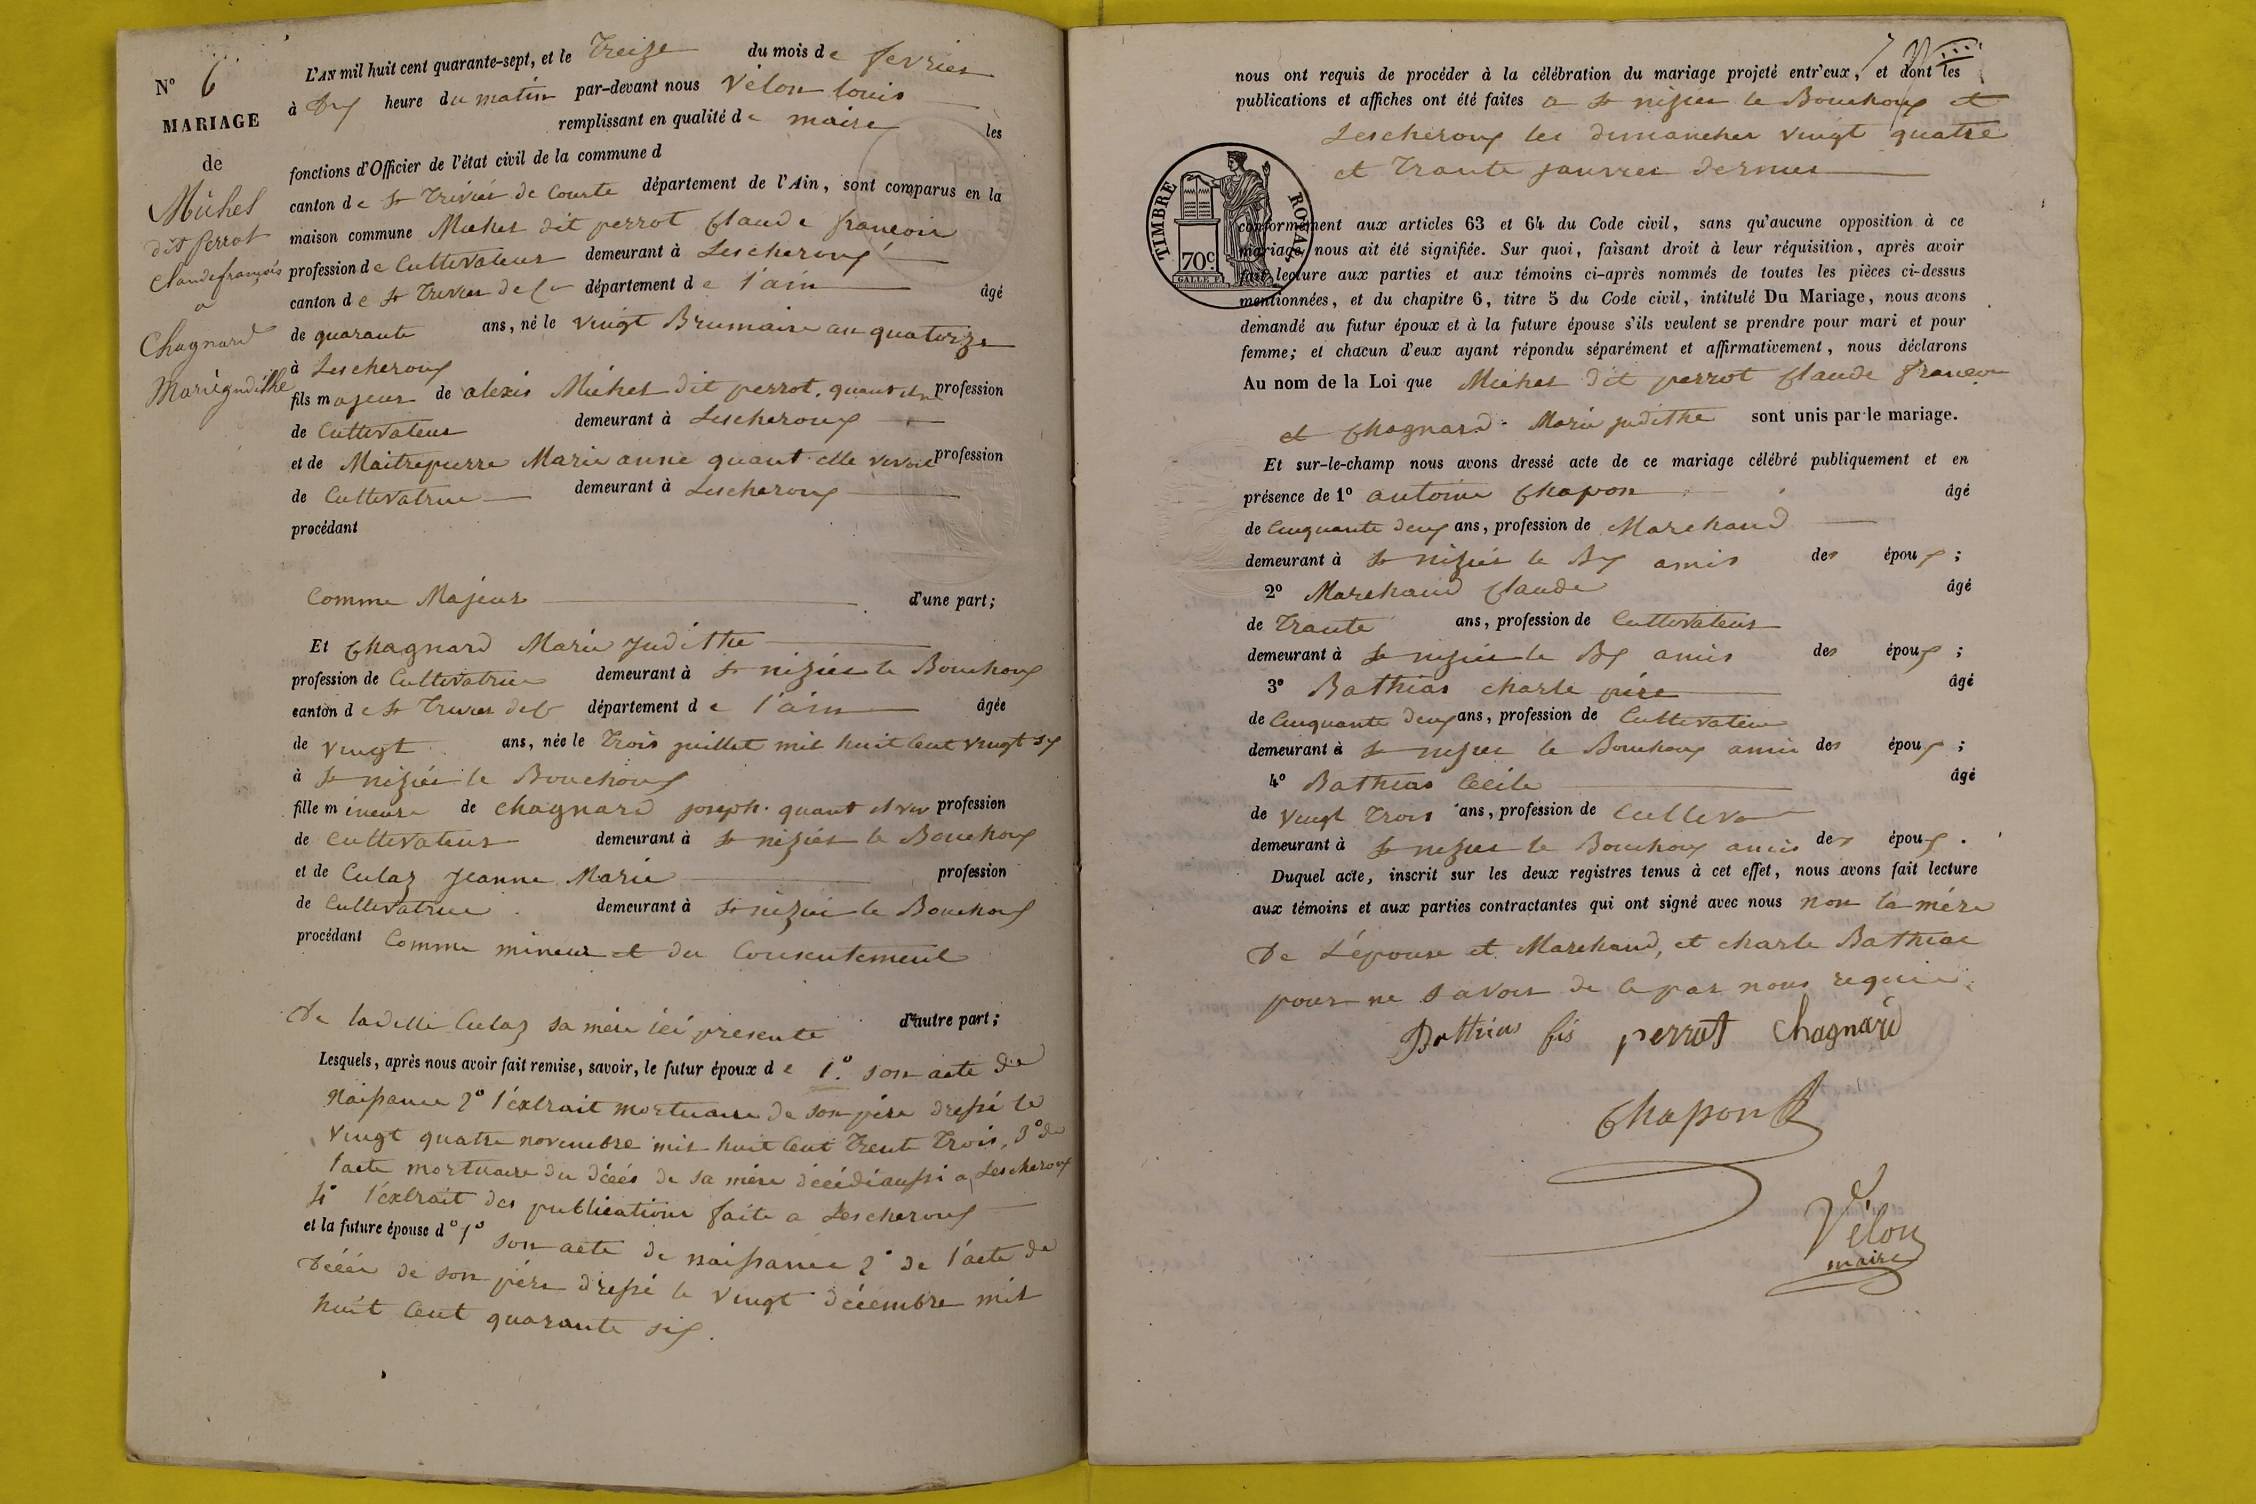 N° 6
MARIAGE
de
Michel
dit perrot
Claude françois
a
Chagnard
Marie judithe
L'AN mil huit cent quarante-sept, et le treize du mois de fevrier
à Dix heure du matin par-devant nous Vélon louis
remplissant en qualité de maire les
fonctions d'Officier de l'état civil de la commune d
canton de St Trivier de Courte département de l'Ain, sont comparus en la
maison commune Michel dit perrot Claude francois
profession de Cultivateur demeurant à Lescheroux
canton de St Trivier de C département de l'ain âgé
de quarante ans, né le vingt Brumaire an quatorze
à Lescheroux
fils majeur de alexis Michel dit perrot. quant il v profession
de Cultivateur demeurant à Lescheroux
et de Maitrepierre Marie anne quant elle vivoit profession
de Cultivatrice demeurant à Lescheroux
procédant
Comme Majeur d'une part;
Et Chagnard Marie Judithe
profession de Cultivatrice demeurant à St nizier le Bouchoux
canton de St Trivier de C département de l'ain âgée
de vingt ans, née le trois juillet mil huit Cent vingt six
à St nizier le Bouchoux
fille mineure de Chagnard joseph. quant il viv profession
de Cultivateur demeurant à St nizier le Bouchoux
et de Culaz Jeanne Marie profession
de Cultivatrice demeurant à St nizier le Bouchoux
procédant Comme mineur et du Consentement
De ladite Culaz sa mére ici presente d'autre part;
Lesquels, après nous avoir fait remise, savoir, le futur époux de 1.° son acte de
naissance 2° l'éxtrait mortuaire de son pére dressé le
vingt quatre novembre mil huit Cent trente trois, 3° de
l'acte mortuaire du décés de sa mére décédé aussi a Lescheroux
4° l'éxtrait des publications faite a Lescheroux
et la future épouse d° 1° son acte de naissance 2° de l'acte de
décés de son pére dressé le vingt décembre mil
huit Cent quarante six.
nous ont requis de procéder à la célébration du mariage projeté entr'eux, et dont les
publications et affiches ont été faites a St nizier le Bouchoux et
Lescheroux les dimanches vingt quatre
et trante janvier dernier
TIMBRE ROYAL
70c
conformément aux articles 63 et 64 du Code civil, sans qu'aucune opposition à ce
mariage nous ait été signifiée. Sur quoi, faisant droit à leur réquisition, après avoir
fait lecture aux parties et aux témoins ci-après nommés de toutes les pièces ci-dessus
mentionnées, et du chapitre 6, titre 5 du Code civil, intitulé Du Mariage, nous avons
demandé au futur époux et à la future épouse s'ils veulent se prendre pour mari et pour
femme; et chacun d'eux ayant répondu séparément et affirmativement, nous déclarons
Au nom de la Loi que Michel dit perrot Claude francois
et Chagnard Marie judithe sont unis par le mariage.
Et sur-le-champ nous avons dressé acte de ce mariage célébré publiquement et en
présence de 1° antoine Chapon âgé
de Cinquante deux ans, profession de Marchand
demeurant à St nizier le Bx amis des époux;
2° Marchand Claude âgé
de trante ans, profession de Cultivateur
demeurant à St nizier le Bx amis des époux;
3° Bathias charle pére âgé
de Cinquante deux ans, profession de Cultivateur
demeurant à St nizier le Bouchoux amis des époux;
4° Bathias Cécile âgé
de vingt trois ans, profession de Cultiva
demeurant à St nizier le Bouchoux amis des époux.
Duquel acte, inscrit sur les deux registres tenus à cet effet, nous avons fait lecture
aux témoins et aux parties contractantes qui ont signé avec nous non la mére
De L'épouse et Marchand, et charle Bathias
pour ne savoir de ce par nous requis.
Bathias fis perrot Chagnard
Chapon
Vélon
maire